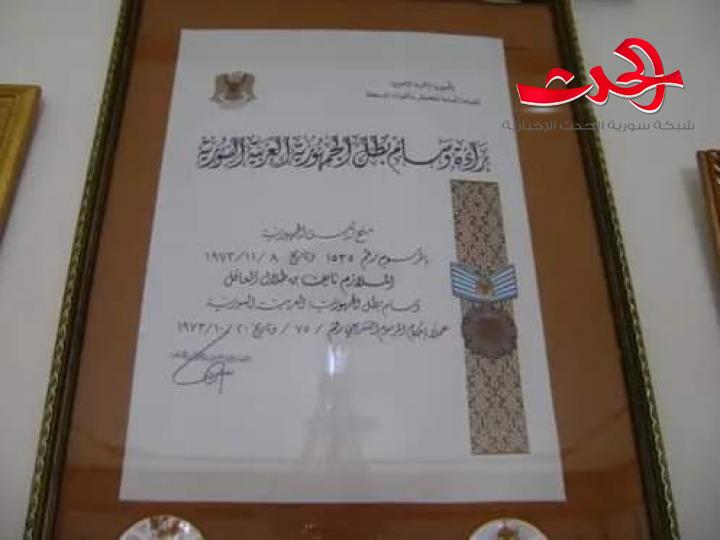 الحدث
شبكة سورية الحدث الإخبارية
الجمهورية العربية السورية
القيادة العامة للجيش والقوات المسلحة
براءة وسام بطل الجمهورية العربية السورية
منح رئيس الجمهورية
بالمرسوم رقم ١٥٣٥ وتاريخ ٨ /١١/ ١٩٧٣
الملازم نايف بن طلال العاقل
وسام بطل الجمهورية العربية السورية
عملاً بأحكام المرسوم التشريعي رقم / ٧٥ / وتاريخ ٢٠ /١٠/ ١٩٧٣